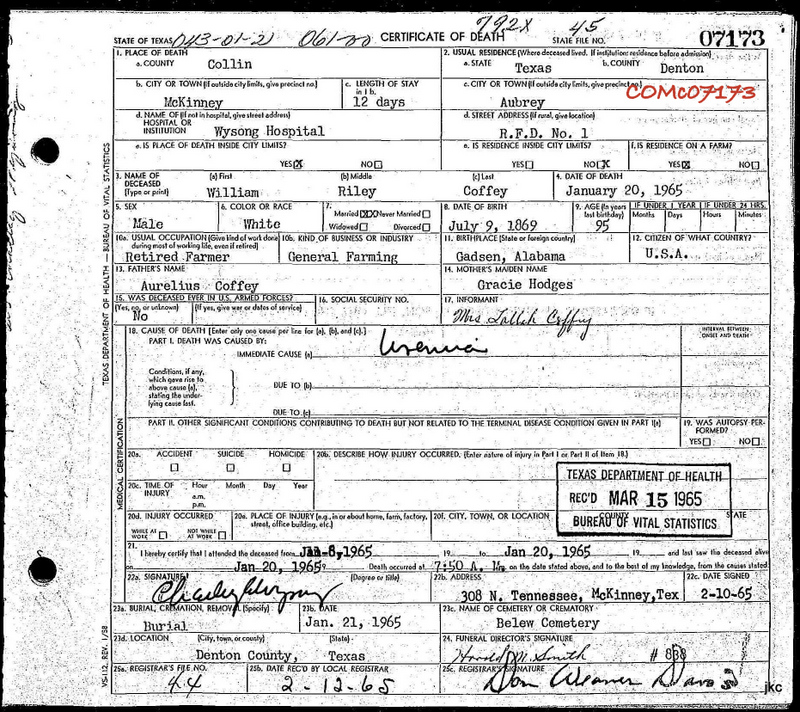 792X 45
STATE OF TEXAS 043-01-21 061-20 CERTIFICATE OF DEATH STATE FILE NO. 07173
1. PLACE OF DEATH
a. COUNTY Collin
2. USUAL RESIDENCE (Where deceased lived. If institution: residence before admission)
a. STATE Texas b. COUNTY Denton
b. CITY OR TOWN (If outside city limits, give precinct no.) McKinney
c. LENGTH OF STAY in 1 b. 12 days
c. CITY OR TOWN (If outside city limits, give precinct no.) Aubrey
COMC07173
d. NAME OF (If not in hospital, give street address) HOSPITAL OR INSTITUTION Wysong Hospital
d. STREET ADDRESS (If rural, give location) R.F.D. No. 1
e. IS PLACE OF DEATH INSIDE CITY LIMITS? YES X NO
e. IS RESIDENCE INSIDE CITY LIMITS? YES NO X
f. IS RESIDENCE ON A FARM? YES X NO
3. NAME OF DECEASED (Type or print) (a) First William (b) Middle Riley (c) Last Coffey
4. DATE OF DEATH January 20, 1965
5. SEX Male
6. COLOR OR RACE White
7. Married XX Never Married Widowed Divorced
8. DATE OF BIRTH July 9, 1869
9. AGE (In years last birthday) 95
IF UNDER 1 YEAR Months Days
IF UNDER 24 HRS. Hours Minutes
10a. USUAL OCCUPATION (Give kind of work done during most of working life, even if retired) Retired Farmer
10b. KIND OF BUSINESS OR INDUSTRY General Farming
11. BIRTHPLACE (State or foreign country) Gadsen, Alabama
12. CITIZEN OF WHAT COUNTRY? U.S.A.
13. FATHER'S NAME Aurelius Coffey
14. MOTHER'S MAIDEN NAME Gracie Hodges
15. WAS DECEASED EVER IN U.S. ARMED FORCES? (Yes, no, or unknown) No (If yes, give war or dates of service)
16. SOCIAL SECURITY NO.
17. INFORMANT Mrs
18. CAUSE OF DEATH [Enter only one cause per line for (a), (b), and (c).]
INTERVAL BETWEEN ONSET AND DEATH
PART I. DEATH WAS CAUSED BY:
IMMEDIATE CAUSE (a) Uremia
Conditions, if any, which gave rise to above cause (a), stating the underlying cause last.
DUE TO (b)
DUE TO (c)
PART II. OTHER SIGNIFICANT CONDITIONS CONTRIBUTING TO DEATH BUT NOT RELATED TO THE TERMINAL DISEASE CONDITION GIVEN IN PART I(a)
19. WAS AUTOPSY PERFORMED? YES NO
20a. ACCIDENT SUICIDE HOMICIDE
20b. DESCRIBE HOW INJURY OCCURRED. (Enter nature of injury in Part I or Part II of Item 18.)
20c. TIME OF INJURY Hour a.m. p.m. Month Day Year
TEXAS DEPARTMENT OF HEALTH
REC'D MAR 15 1965
BUREAU OF VITAL STATISTICS
20d. INJURY OCCURRED WHILE AT WORK NOT WHILE AT WORK
20e. PLACE OF INJURY (e.g., in or about home, farm, factory, street, office building, etc.)
20f. CITY, TOWN, OR LOCATION COUNTY STATE
21. I hereby certify that I attended the deceased from Jan 8, 1965 19 to Jan 20, 1965 19 and last saw the deceased alive
on Jan 20, 1965 Death occurred at 7:50 A. m. on the date stated above, and to the best of my knowledge, from the causes stated.
22a. SIGNATURE (Degree or title)
22b. ADDRESS 308 N. Tennessee, McKinney, Tex
22c. DATE SIGNED 2-10-65
23a. BURIAL, CREMATION, REMOVAL (Specify) Burial
23b. DATE Jan. 21, 1965
23c. NAME OF CEMETERY OR CREMATORY Belew Cemetery
23d. LOCATION (City, town, or county) (State) Denton County, Texas
24. FUNERAL DIRECTOR'S SIGNATURE Harold M. Smith # 838
25a. REGISTRAR'S FILE NO. 44
25b. DATE REC'D BY LOCAL REGISTRAR 2-12-65
25c. REGISTRAR'S SIGNATURE Don Weaver Davas
jkc
TEXAS DEPARTMENT OF HEALTH — BUREAU OF VITAL STATISTICS
MEDICAL CERTIFICATION
VS-112, REV. 1/58